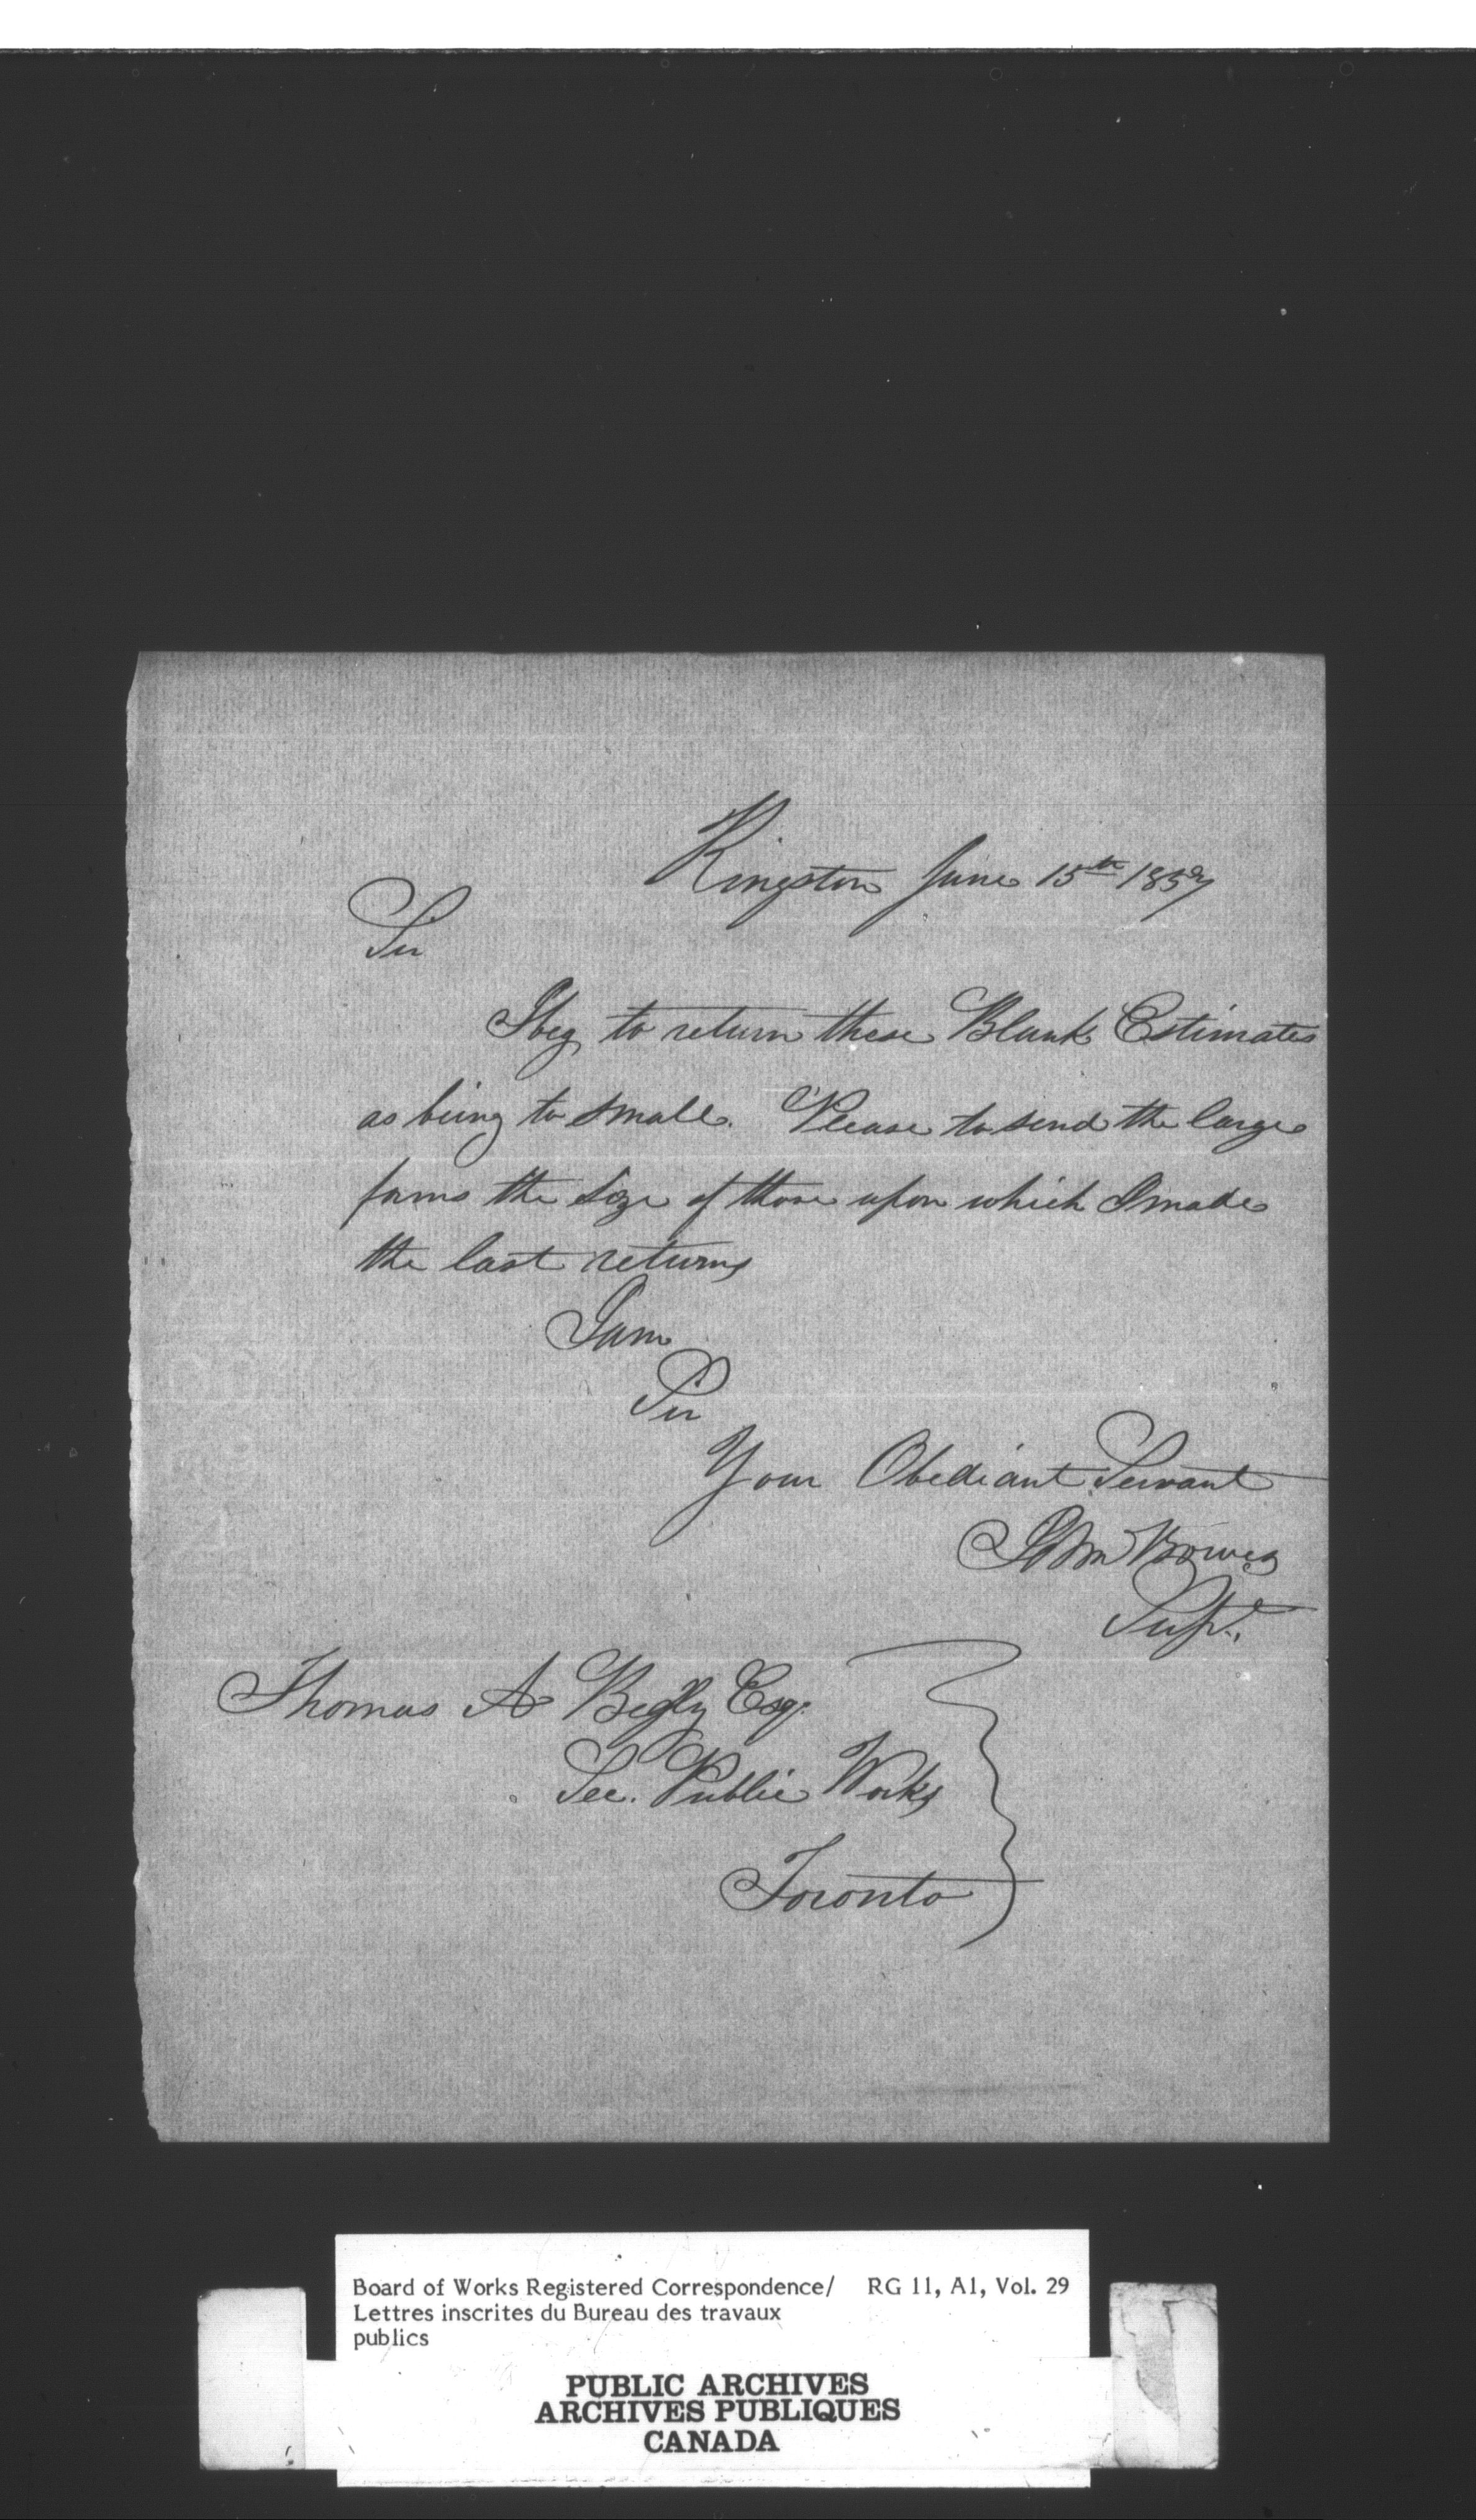 Kingston June 15th 1857
Sir
I beg to return these Blank Estimates
as being to small. Please to send the large
forms the size of those upon which I made
the last returns
I am
Sir
Your Obediant Servant
John Bowes
Supt.
Thomas A Begly Esq.
Sec. Public Works
Toronto
Board of Works Registered Correspondence/ RG 11, A1, Vol. 29
Lettres inscrites du Bureau des travaux
publics
PUBLIC ARCHIVES
ARCHIVES PUBLIQUES
CANADA